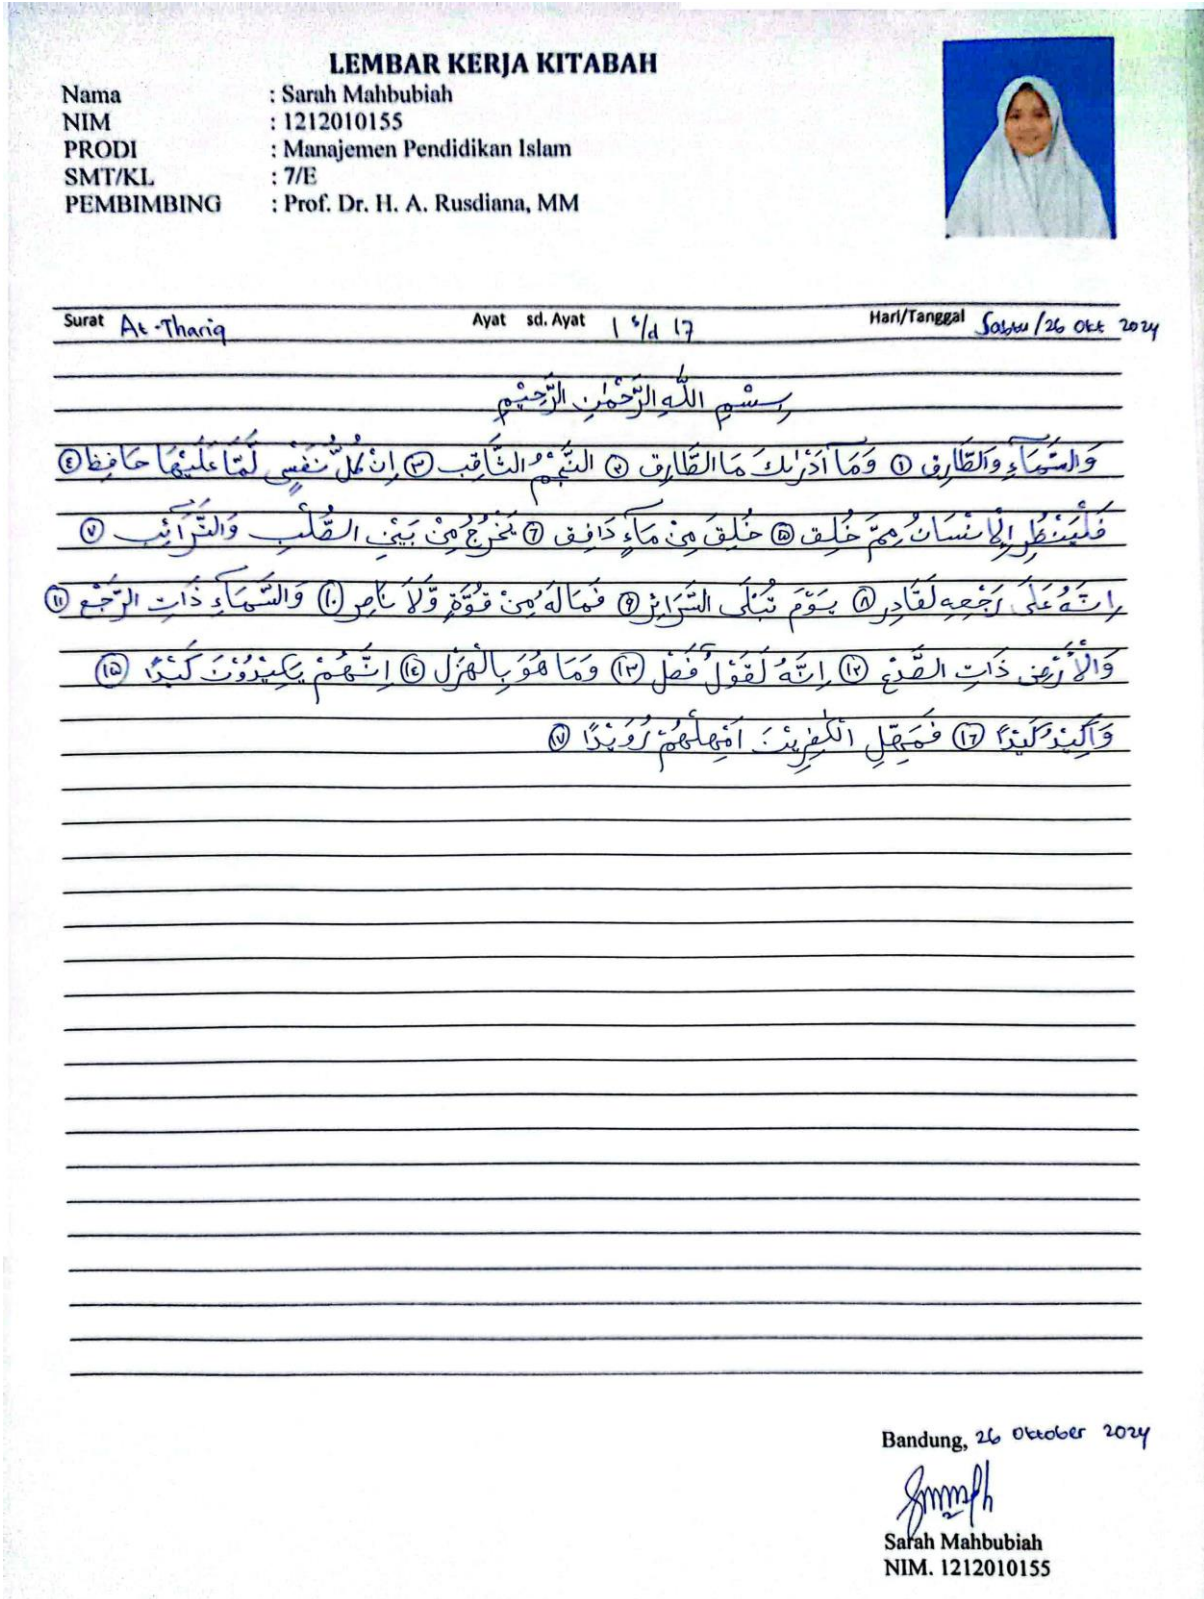 LEMBAR KERJA KITABAH
Nama : Sarah Mahbubiah
NIM : 1212010155
PRODI : Manajemen Pendidikan Islam
SMT/KL : 7/E
PEMBIMBING : Prof. Dr. H. A. Rusdiana, MM
Surat At-Thariq Ayat sd. Ayat 1 s/d 17 Hari/Tanggal Sabtu/26 Okt 2024
بِسْمِ اللّٰهِ الرَّحْمٰنِ الرَّحِيْمِ
وَالسَّمَاۤءِ وَالطَّارِقِ ١ وَمَآ اَدْرٰىكَ مَا الطَّارِقُ ٢ النَّجْمُ الثَّاقِبُ ٣ اِنْ كُلُّ نَفْسٍ لَّمَّا عَلَيْهَا حَافِظٌ ٤
فَلْيَنْظُرِ الْاِنْسَانُ مِمَّ خُلِقَ ٥ خُلِقَ مِنْ مَّاۤءٍ دَافِقٍ ٦ يَخْرُجُ مِنْ بَيْنِ الصُّلْبِ وَالتَّرَاۤىِٕبِ ٧
اِنَّهٗ عَلٰى رَجْعِهٖ لَقَادِرٌ ٨ يَوْمَ تُبْلَى السَّرَاۤىِٕرُ ٩ فَمَا لَهٗ مِنْ قُوَّةٍ وَّلَا نَاصِرٍ ١٠ وَالسَّمَاۤءِ ذَاتِ الرَّجْعِ ١١
وَالْاَرْضِ ذَاتِ الصَّدْعِ ١٢ اِنَّهٗ لَقَوْلٌ فَصْلٌ ١٣ وَمَا هُوَ بِالْهَزْلِ ١٤ اِنَّهُمْ يَكِيْدُوْنَ كَيْدًا ١٥
وَاَكِيْدُ كَيْدًا ١٦ فَمَهِّلِ الْكٰفِرِيْنَ اَمْهِلْهُمْ رُوَيْدًا ١٧
Bandung, 26 Oktober 2024
Sarah Mahbubiah
NIM. 1212010155